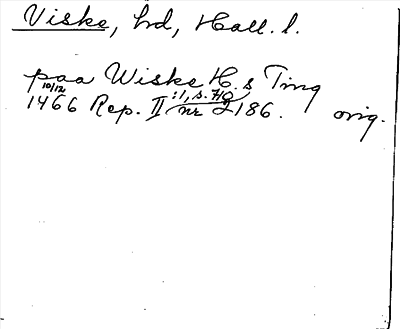 Viske, hd, Hall. l.
paa Wiske H.s Ting
10/12 :1, s. 40
1466 Rep. II nr 2186. orig.